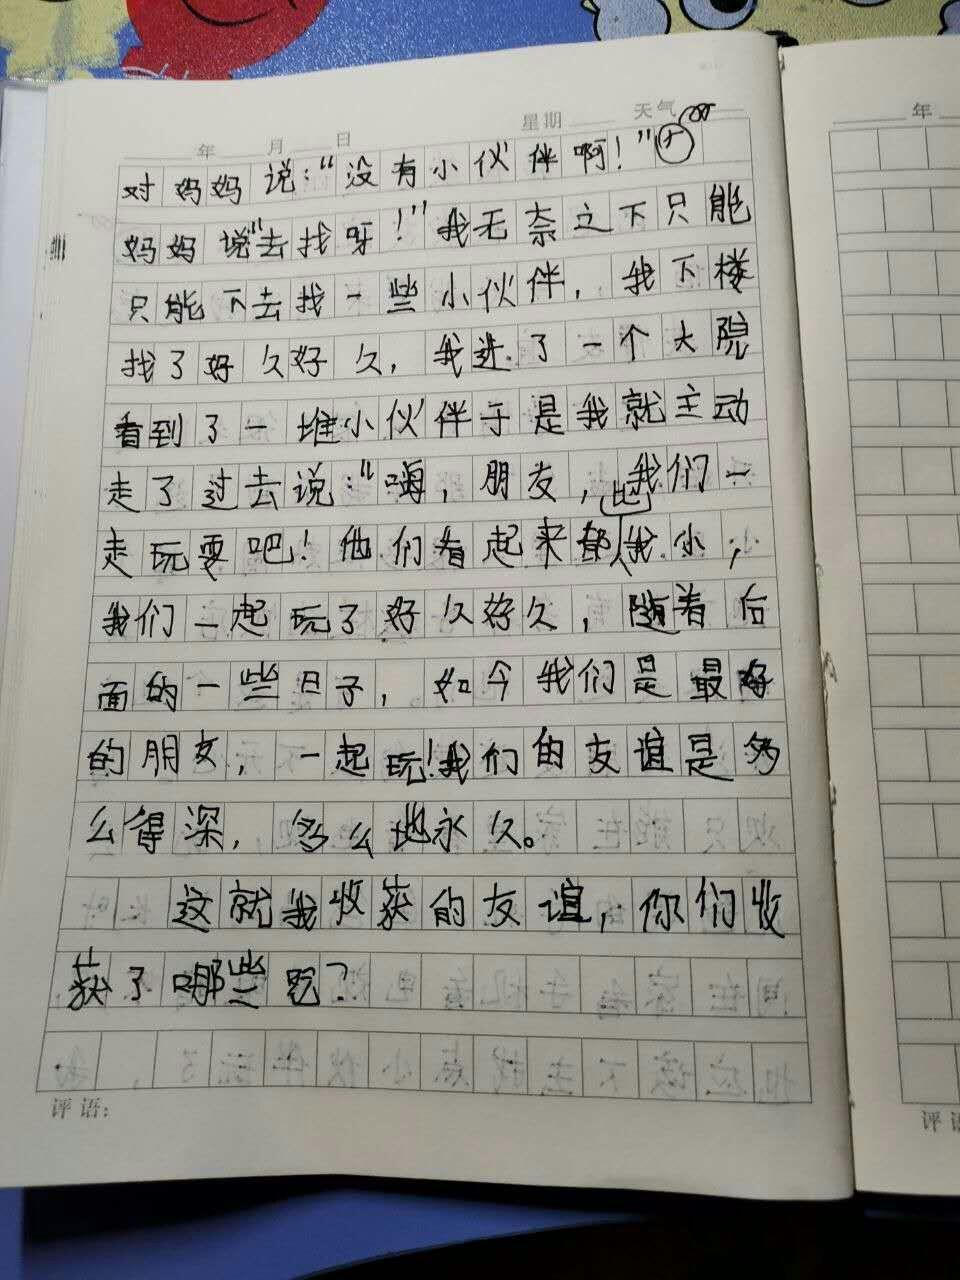 年 月 日 星期 天气
对妈妈说:“没有小伙伴啊!”
妈妈说“去找呀!”我无奈之下只能
只能下去找一些小伙伴,我下楼
找了好久好久,我进了一个大院
看到了一堆小伙伴于是我就主动
走了过去说:“嗨,朋友,我们一
走玩耍吧!他们看起来都比我小,
我们一起玩了好久好久,随着后
面的一些日子,如今我们是最好
的朋友,一起玩!我们的友谊是多
么得深,多么地永久。
这就我收获的友谊,你们收
获了哪些呢?
评语:
年
评语